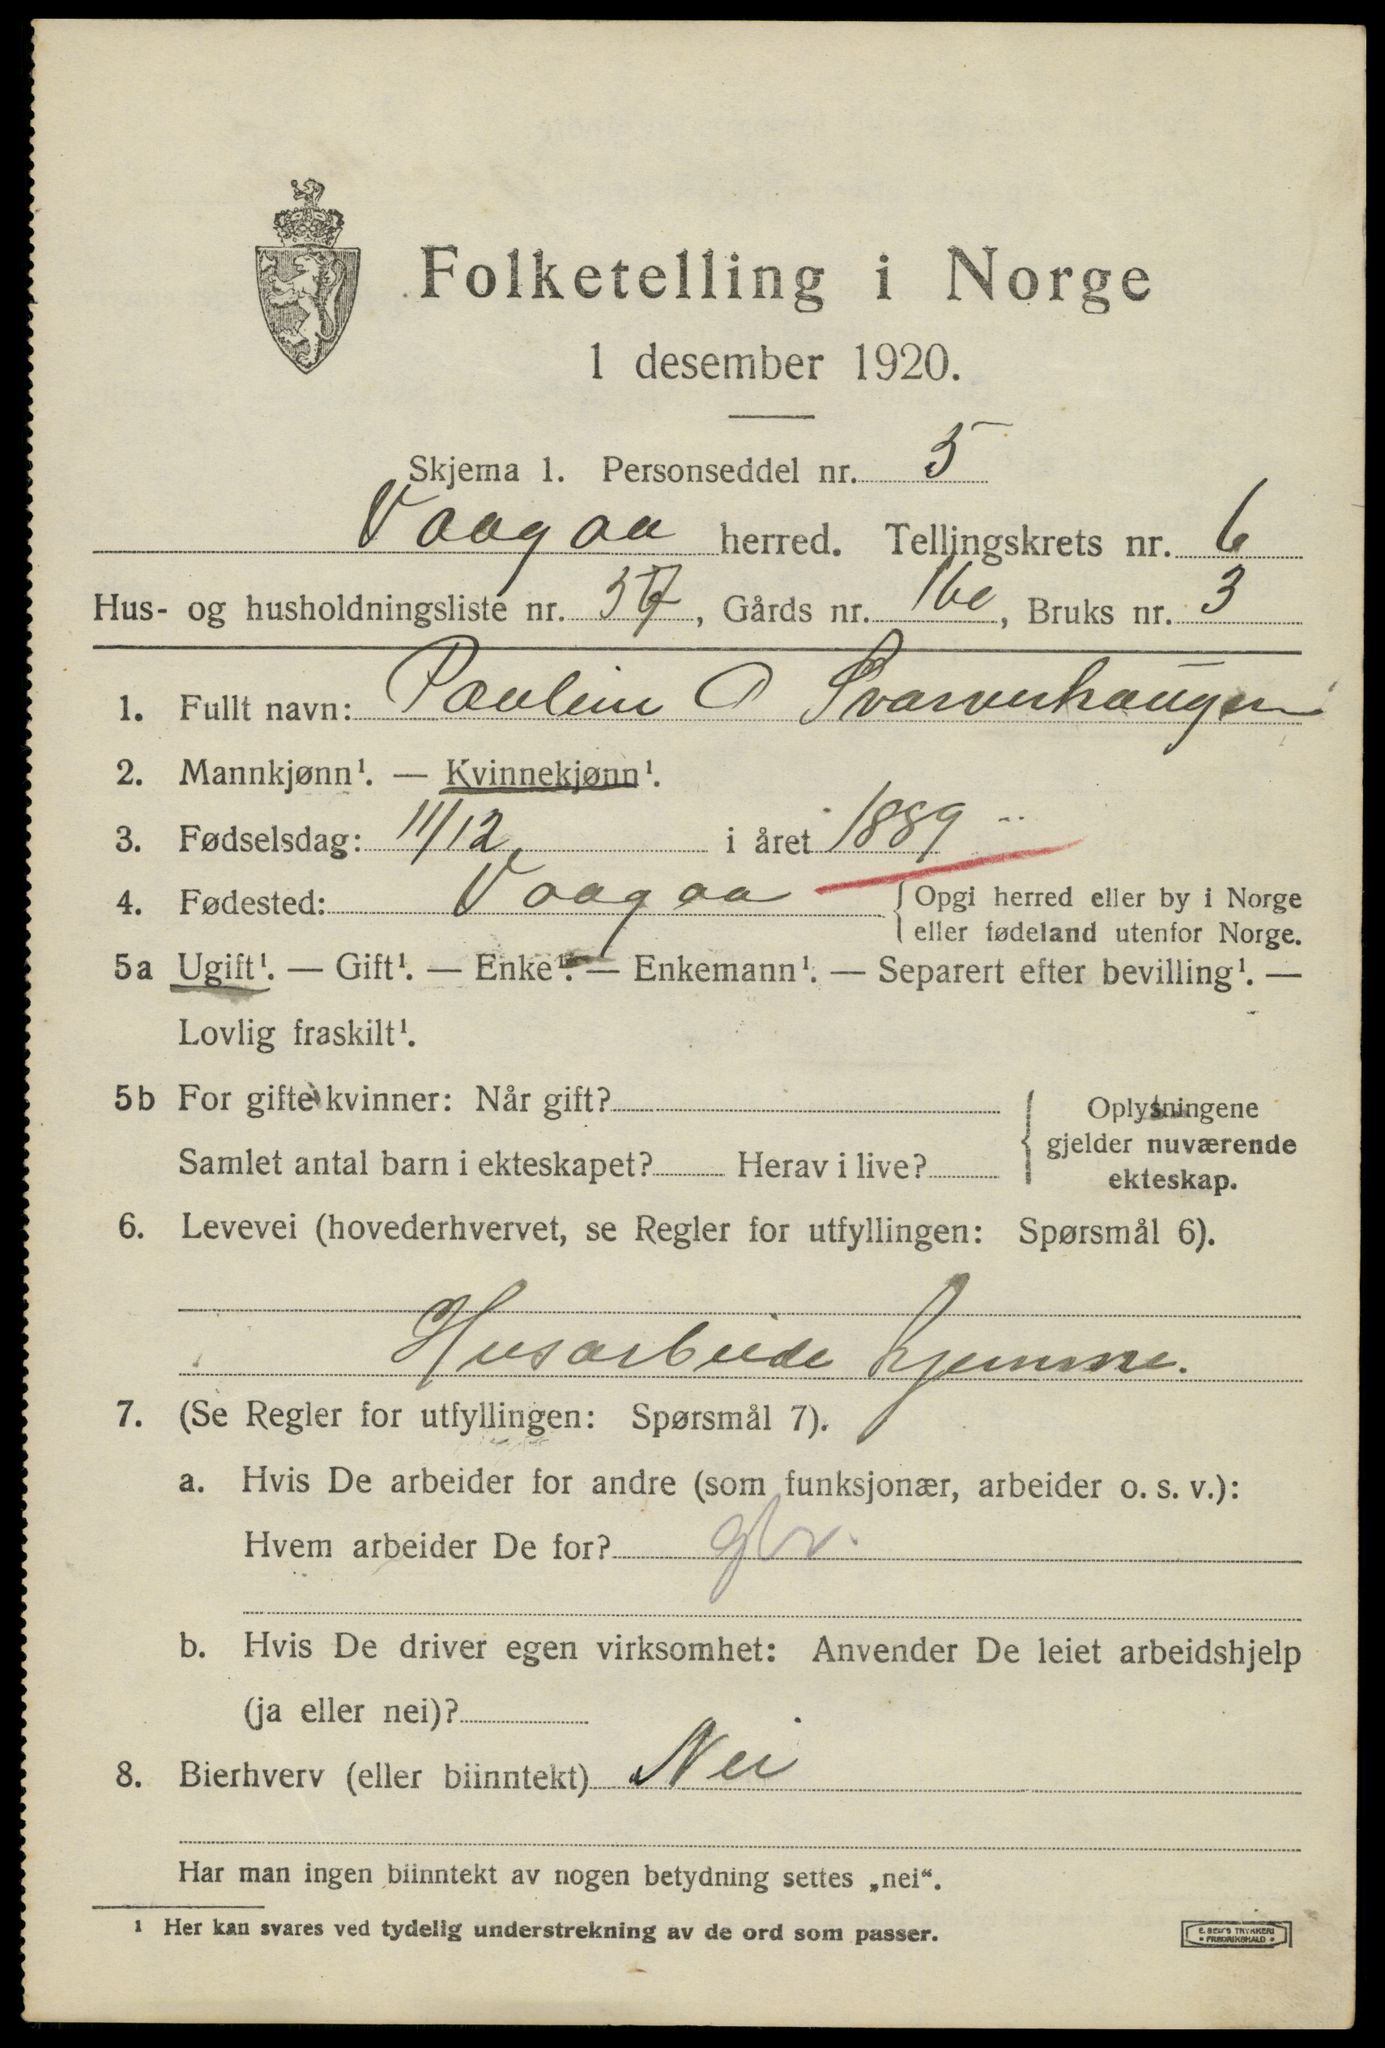 Folketelling i Norge
1 desember 1920.
Skjema 1. Personseddel nr. 5
Vaagaa herred. Tellingskrets nr. 6
Hus- og husholdningsliste nr. 37, Gårds nr. 160, Bruks nr. 3
1. Fullt navn: Pauline O Svarverhaugen
2. Mannkjønn¹. — Kvinnekjønn¹.
3. Fødselsdag: 11/12 i året 1889
4. Fødested: Vaagaa { Opgi herred eller by i Norge
eller fødeland utenfor Norge.
5a Ugift¹. — Gift¹. — Enke¹. — Enkemann¹. — Separert efter bevilling¹. —
Lovlig fraskilt¹.
5b For gifte kvinner: Når gift? { Oplysningene
gjelder nuværende
Samlet antal barn i ekteskapet? Herav i live?
ekteskap.
6. Levevei (hovederhvervet, se Regler for utfyllingen: Spørsmål 6).
Husarbeide hjemme.
7. (Se Regler for utfyllingen: Spørsmål 7).
a. Hvis De arbeider for andre (som funksjonær, arbeider o. s. v.):
Hvem arbeider De for?
b. Hvis De driver egen virksomhet: Anvender De leiet arbeidshjelp
(ja eller nei)?
8. Bierhverv (eller biinntekt) Nei
Har man ingen biinntekt av nogen betydning settes „nei“.
¹ Her kan svares ved tydelig understrekning av de ord som passer.
E. SEM'S TRYKKERI
• FREDRIKSHALD •